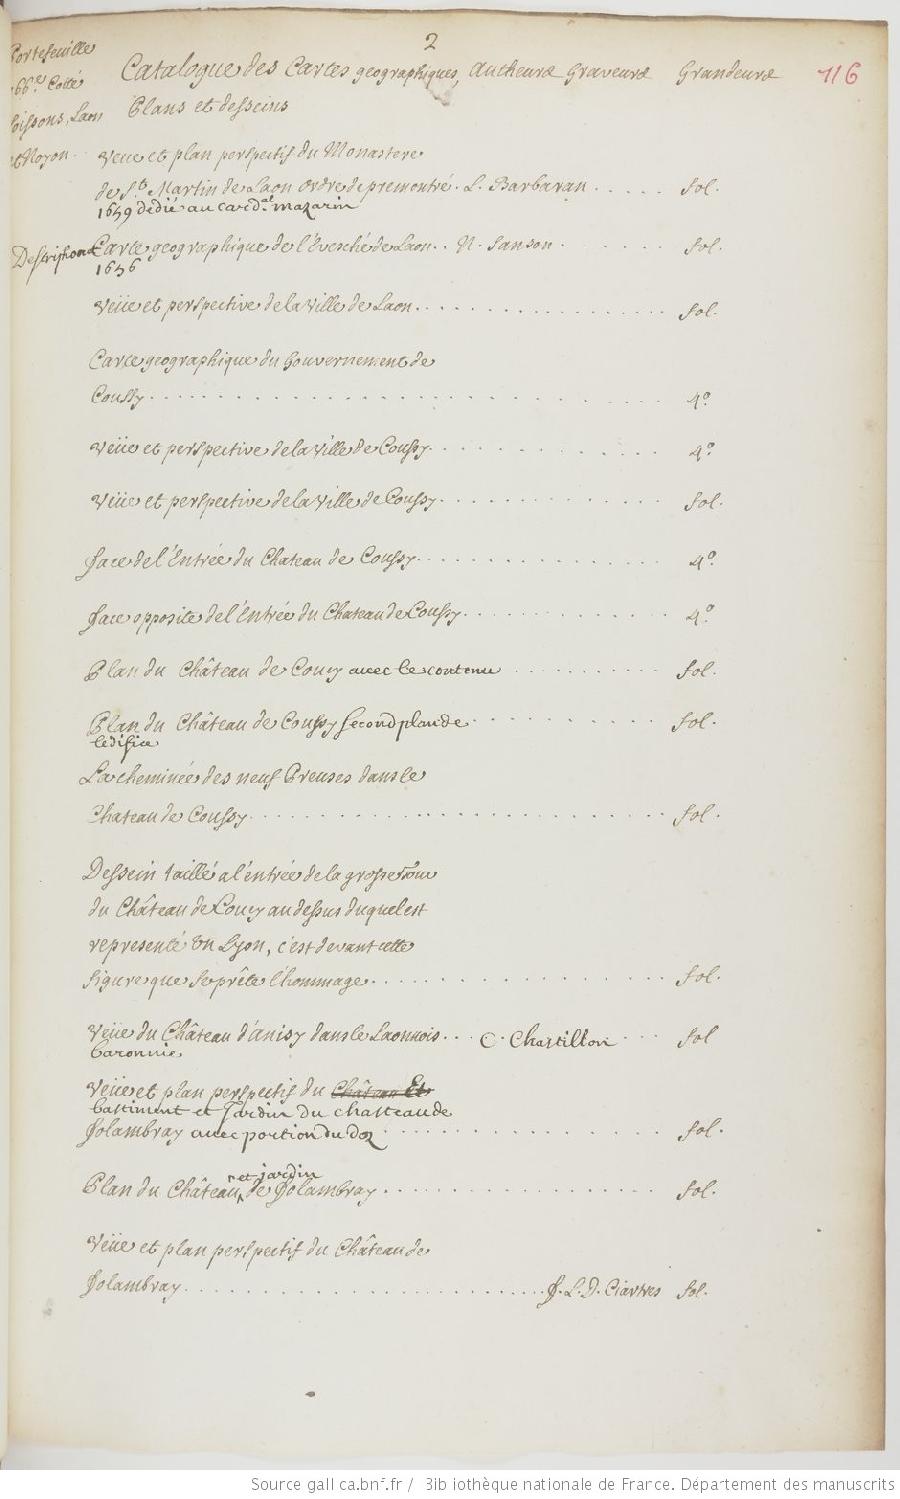 2
Portefeuille
66e Cotté
Soissons, Laon
et Noyon.
Catalogue des Cartes geographiques, Autheurs Graveurs Grandeurs
116
Plans et desseins
Veue et plan perspectif du Monastere
de St. Martin de Laon ordre de premontré. L. Barbaran . . . . . fol.
1659 dédié au cardal mazarin
Carte geographique de l'Evesché de Laon. . N. Sanson . . . . . fol.
1656
Veüe et perspective de la Ville de Laon. . . . . fol.
Carte geographique du Gouvernement de
Coussy . . . . . 4°
Veüe et perspective de la Ville de Coussy . . . . . 4°
Veüe et perspective de la Ville de Coussy . . . . . fol.
face de l'Entrée du Chateau de Coussy . . . . . 4°
face opposite de l'Entrée du Chateau de Coussy . . . . . 4°
Plan du Château de Coucy avec le contenu . . . . . fol.
Plan du Château de Coussy second plan de . . . . . fol.
lédifice
La cheminée des neuf Preuses dans le
Chateau de Coussy . . . . . fol.
Dessein taillé a l'entrée de la grosse tour
du Château de Coucy au dessus duquel est
representé un Lyon, c'est devant cette
figure que se prête l'hommage . . . . . fol.
Veüe du Château d'anisy dans le Laonnois . . . C. Chastillon . . . fol
baronnie
Veüe et plan perspectif du Château Et
bastiment et Jardin du chasteau de
folambray avec portion du . . . . . fol.
et jardin
Plan du Château de folambray . . . . . fol.
Veüe et plan perspectif du Château de
folambray . . . . . f. L. D. Ciartres fol.
Source gallica.bnf.fr / Bibliothèque nationale de France. Département des manuscrits